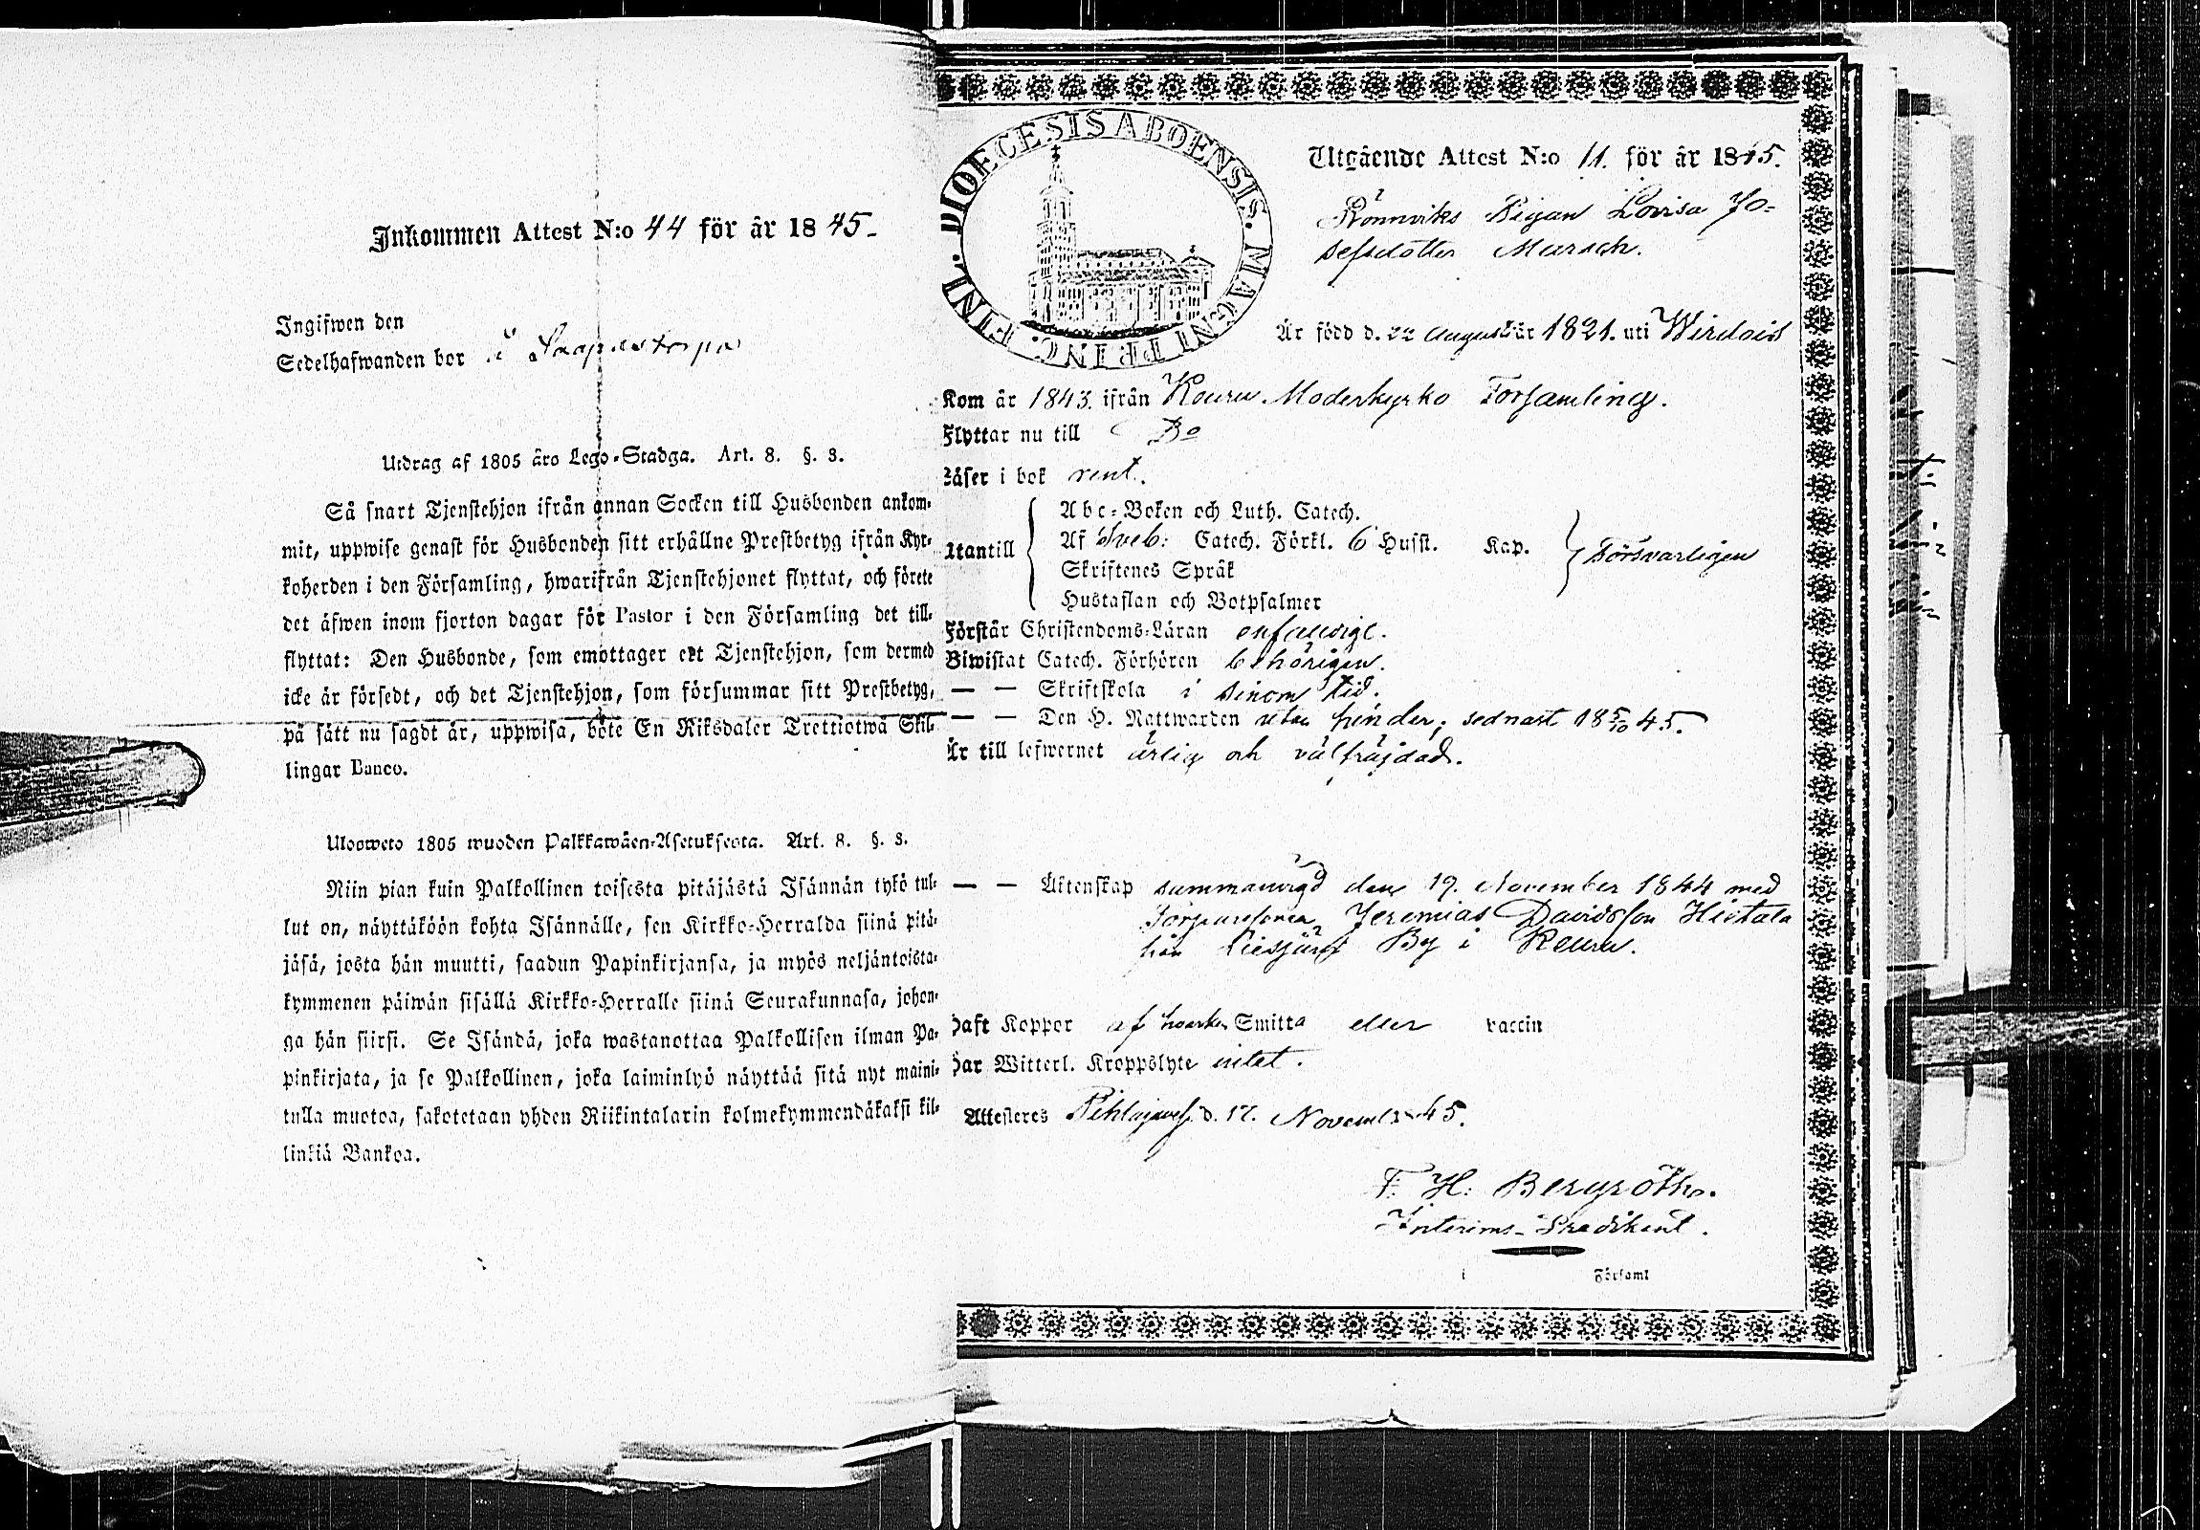 Inkommen Attest N:o 44 för år 1845.
Ingifwen den
Sedelhafwanden bor i
Utdrag af 1805 åro Lego-Stadga. Art. 8. §. 8.
Så snart Tjenstehjon ifrån annan Socken till Husbonden ankom-
mit, uppwise genast för Husbonden sitt erhållne Prestbetyg ifrån Kyr-
koherden i den Församling, hwarifrån Tjenstehjonet flyttat, och förete
det äfwen inom fjorton dagar för Pastor i den Församling det till-
flyttat: Den Husbonde, som emottager ett Tjenstehjon, som dermed
icke är försedt, och det Tjenstehjon, som försummar sitt Prestbetyg,
på sätt nu sagdt är, uppwisa, böte En Riksdaler Trettiotwå Skil-
lingar Banco.
Ulosweto 1805 wuoden Palkkawäen-Asetuksesta. Art. 8. §. 8.
Niin pian kuin Palkollinen toisesta pitäjästä Isännän tykö tul-
lut on, näyttäköön kohta Isännälle, sen Kirkko-Herralda siinä pitä-
jäsä, josta hän muutti, saadun Papinkirjansa, ja myös neljäntoista-
kymmenen päiwän sisällä Kirkko-Herralle siinä Seurakunnasa, johon-
ga hän siirsi. Se Isändä, joka wastanottaa Palkollisen ilman Pa-
pinkirjata, ja se Palkollinen, joka laiminlyö näyttää sitä nyt maini-
tulla muotoa, sakotetaan yhden Riikintalarin kolmekymmendäkaksi kil-
linkiä Bankoa.
DIOECESIS ABOENSIS. MAGNI PRINC. FINL.
Utgående Attest N:o 11. för år 1845.
Rönnviks Pigan Lovisa Jo-
sefsdotter
Är född d. 22 Augusti år 1821. uti Wirdois
Kom år 1843. ifrån Keuru Moderkyrko Församling.
Flyttar nu till Do
Läser i bok rent.
Utantill
Abc-Boken och Luth. Catech.
Af Sveb: Catech. Förkl. 6 Husst. Kap. Försvarligen
Skriftenes Språk
Hustaflan och Botpsalmer
Förstår Christendoms-Läran enfaldigt.
Biwistat Catech. Förhören behörigen.
— — Skriftskola i sinom tid.
— — Den H. Nattwarden utan hinder, sednast 18 5/10 45.
Är till lefwernet ärlig och välfräjdad.
— — Äktenskap sammanvigd den 19. November 1844 med
Torparesonen Jeremias Davidsson Hietala
från Liesjärvi By i Keuru.
Haft Koppor af Smitta eller vaccin
Har Witterl. Kroppslyte intet.
Attesteres Pihlajav. d. 17. November 45.
F. H. Bergroth.
Interims-Predikant.
i Församl